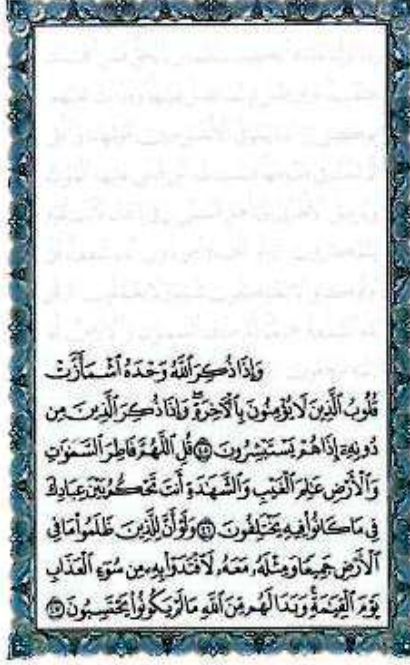 وَإِذَا ذُكِرَ ٱللَّهُ وَحْدَهُ ٱشْمَأَزَّتْ
قُلُوبُ ٱلَّذِينَ لَا يُؤْمِنُونَ بِٱلْأَخِرَةِ وَإِذَا ذُكِرَ ٱلَّذِينَ مِن
دُونِهِۦٓ إِذَا هُمْ يَسْتَبْشِرُونَ ٤٥ قُلِ ٱللَّهُمَّ فَاطِرَ ٱلسَّمَٰوَٰتِ
وَٱلْأَرْضِ عَٰلِمَ ٱلْغَيْبِ وَٱلشَّهَٰدَةِ أَنتَ تَحْكُمُ بَيْنَ عِبَادِكَ
فِى مَا كَانُوا۟ فِيهِ يَخْتَلِفُونَ ٤٦ وَلَوْ أَنَّ لِلَّذِينَ ظَلَمُوا۟ مَا فِى
ٱلْأَرْضِ جَمِيعًا وَمِثْلَهُۥ مَعَهُۥ لَٱفْتَدَوْا۟ بِهِۦ مِن سُوٓءِ ٱلْعَذَابِ
يَوْمَ ٱلْقِيَٰمَةِ وَبَدَا لَهُم مِّنَ ٱللَّهِ مَا لَمْ يَكُونُوا۟ يَحْتَسِبُونَ ٤٧